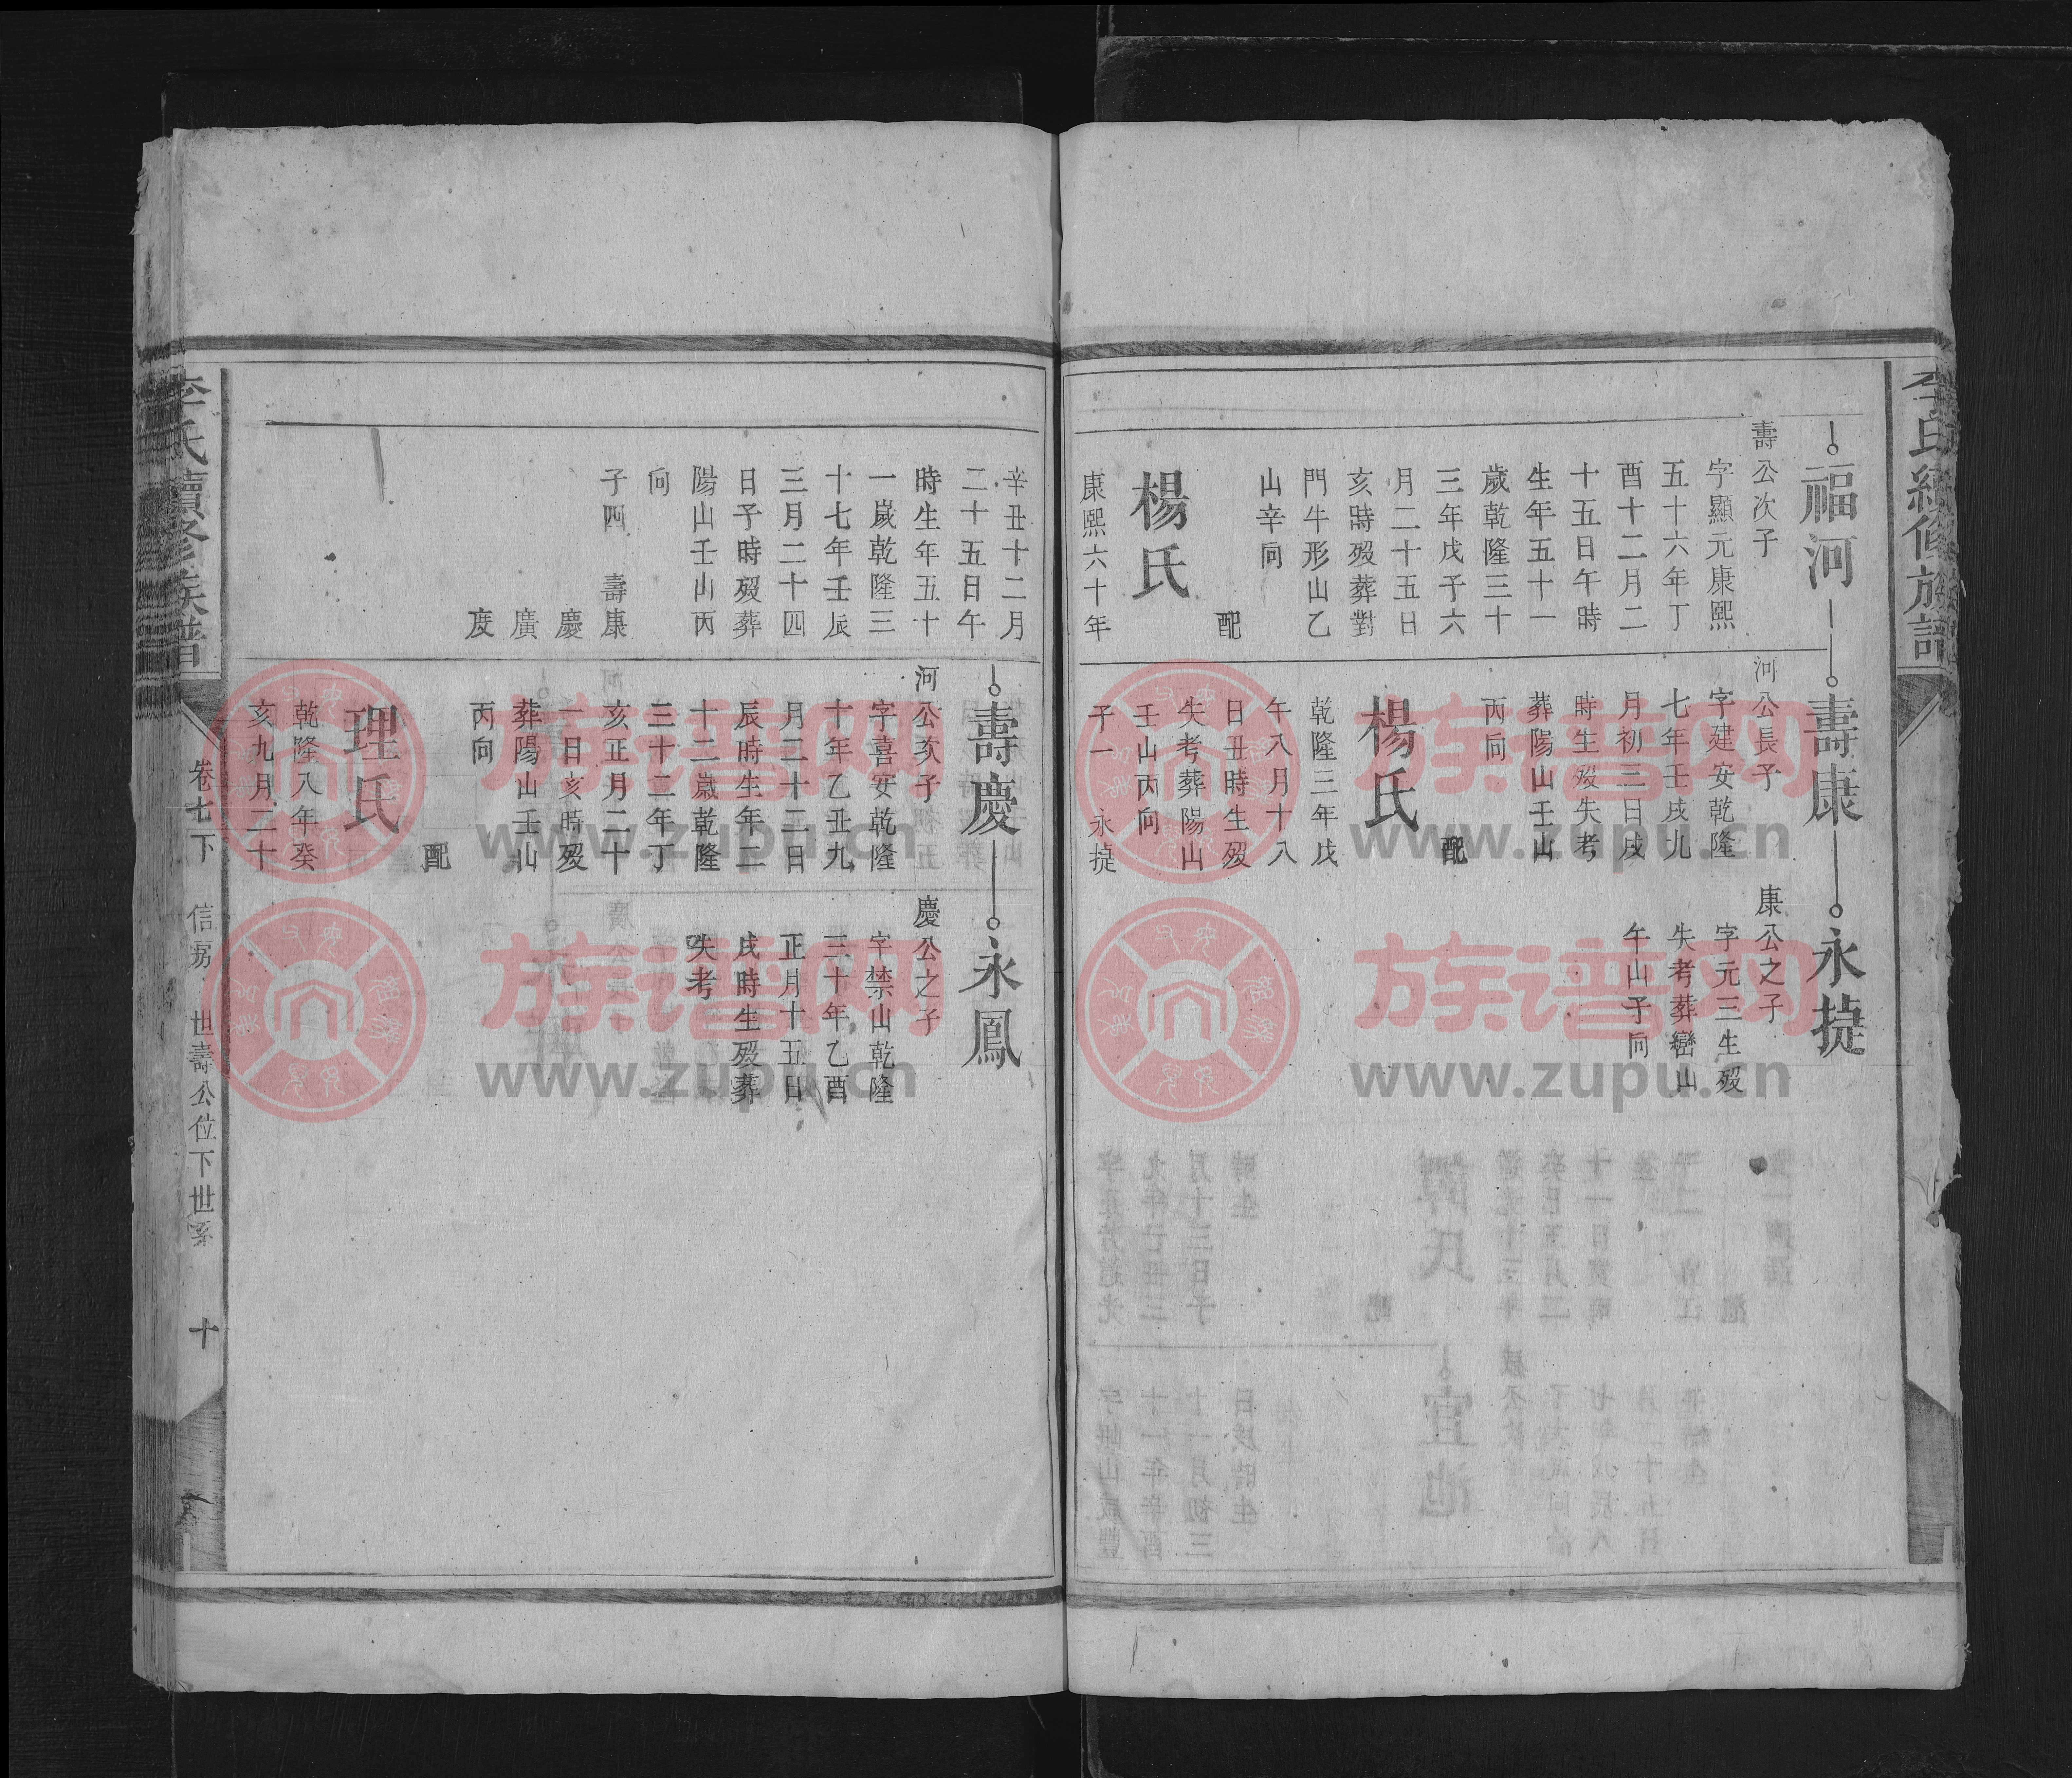 李氏續修族譜
福河
壽公次子
字顯元康熙
五十六年丁
酉十二月二
十五日午時
生年五十一
歲乾隆三十
三年戊子六
月二十五日
亥時殁葬對
門牛形山乙
山辛向
配
楊氏
康熙六十年
壽康
河公長子
字建安乾隆
七年壬戌九
月初三日戌
時生殁失考
葬陽山壬山
丙向
配
楊氏
乾隆三年戊
午八月十八
日丑時生殁
失考葬陽山
壬山丙向
子一 永㨗
永㨗
康公之子
字元三生殁
失考葬巒山
午山子向
辛丑十二月
二十五日午
時生年五十
一歲乾隆三
十七年壬辰
三月二十四
日子時殁葬
陽山壬山丙
向
子四 壽康
慶
廣
度
壽慶
河公次子
字喜安乾隆
十年乙丑九
月二十二日
辰時生年二
十二歲乾隆
三十二年丁
亥正月二十
一日亥時殁
葬陽山壬山
丙向
配
理氏
乾隆八年癸
亥九月二十
永鳳
慶公之子
字禁山乾隆
三十年乙酉
正月十五日
戌時生殁葬
失考
李氏續修族譜
卷七下 信房 世壽公位下世系 十
族谱网
www.zupu.cn
族谱网
www.zupu.cn
族谱网
www.zupu.cn
族谱网
www.zupu.cn